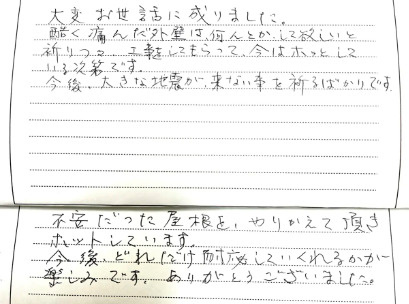 大変お世話に成りました。
酷く痛んだ外壁は、何んとかして欲しいと
祈りつつ 工事をしてもらって、今はホッとして
いる次第です。
今後、大きな地震が、来ない事を祈るばかりです。
不安だった屋根を、やりかえて頂き
ホットしています。
今後、どれだけ耐災していくれるかが
楽しみです。ありがとうございました。